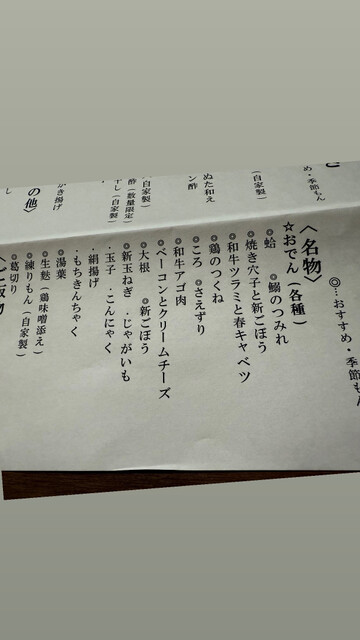 ◎…おすすめ・季節もん
〈名物〉
☆おでん（各種）
◎蛤 ◎鰯のつみれ
◎焼き穴子と新ごぼう
◎和牛ツラミと春キャベツ
◎鶏のつくね
◎ころ ◎さえずり
◎和牛アゴ肉
◎ベーコンとクリームチーズ
◎大根 ◎新ごぼう
◎新玉ねぎ ・じゃがいも
・玉子 ・こんにゃく
・絹揚げ
・もちきんちゃく
◎湯葉
◎生麩（鶏味噌添え）
◎練りもん（自家製）
◎葛切り
め・季節もん
（自家製）
ぬた和え
ン酢
（自家製）
酢（数量限定）
干し（自家製）
かき揚げ
の他〉